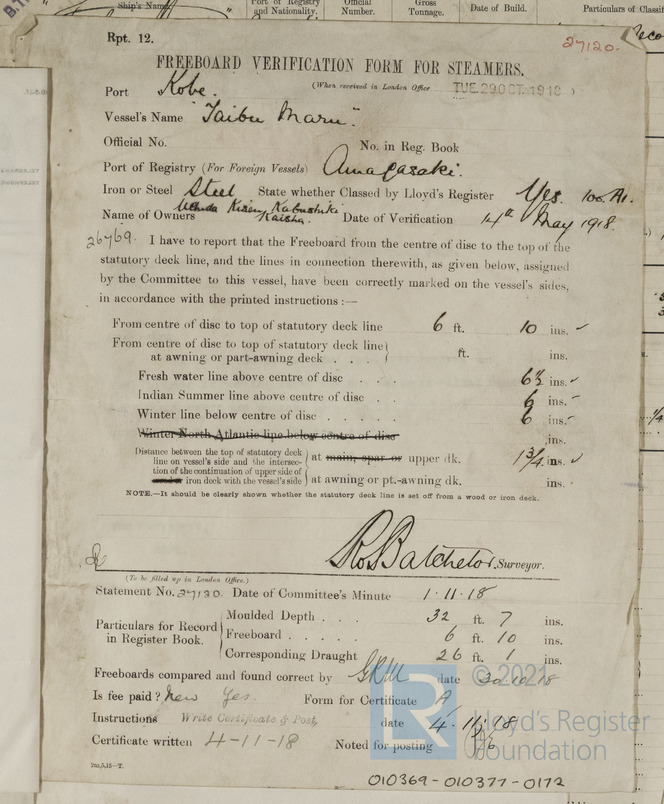 Ship's Name.
Port of Registry and Nationality.
Official Number.
Gross Tonnage.
Date of Build.
Particulars of Classif
Rpt. 12.
27120.
FREEBOARD VERIFICATION FORM FOR STEAMERS.
Port Kobe. (When received in London Office TUE. 29 OCT. 1918 )
Vessel's Name "Taibu Maru".
Official No. No. in Reg. Book
Port of Registry (For Foreign Vessels) Amagasaki.
Iron or Steel Steel State whether Classed by Lloyd's Register Yes. 100.A1.
Name of Owners Uchida Kisen Kabushiki Kaisha. Date of Verification 14th May 1918.
26769. I have to report that the Freeboard from the centre of disc to the top of the
statutory deck line, and the lines in connection therewith, as given below, assigned
by the Committee to this vessel, have been correctly marked on the vessel's sides,
in accordance with the printed instructions :—
From centre of disc to top of statutory deck line 6 ft. 10 ins. ✓
From centre of disc to top of statutory deck line
at awning or part-awning deck . . . ft. ins.
Fresh water line above centre of disc . . . 6½ ins. ✓
Indian Summer line above centre of disc . . 6 ins.
Winter line below centre of disc . . . . . 6 ins.
Winter North Atlantic line below centre of disc ins.
Distance between the top of statutory deck
line on vessel's side and the intersec-
tion of the continuation of upper side of
iron deck with the vessel's side
at main, spar or upper dk. 1¾ ins. ✓
at awning or pt.-awning dk. ins.
NOTE.—It should be clearly shown whether the statutory deck line is set off from a wood or iron deck.
Batchelor, Surveyor.
(To be filled up in London Office.)
Statement No. 27120. Date of Committee's Minute 1.11.18
Particulars for Record in Register Book.
Moulded Depth . . . 32 ft. 7 ins.
Freeboard . . . . . 6 ft. 10 ins.
Corresponding Draught 26 ft. 1 ins.
Freeboards compared and found correct by GRM date 30.10.18
Is fee paid? New Yes. Form for Certificate A
Instructions Write Certificate & Post, date 4.11.18
Certificate written 4-11-18 Noted for posting
7m,5,15—T.
© 2021
Lloyd's Register
Foundation
LR
010369-010377-0172